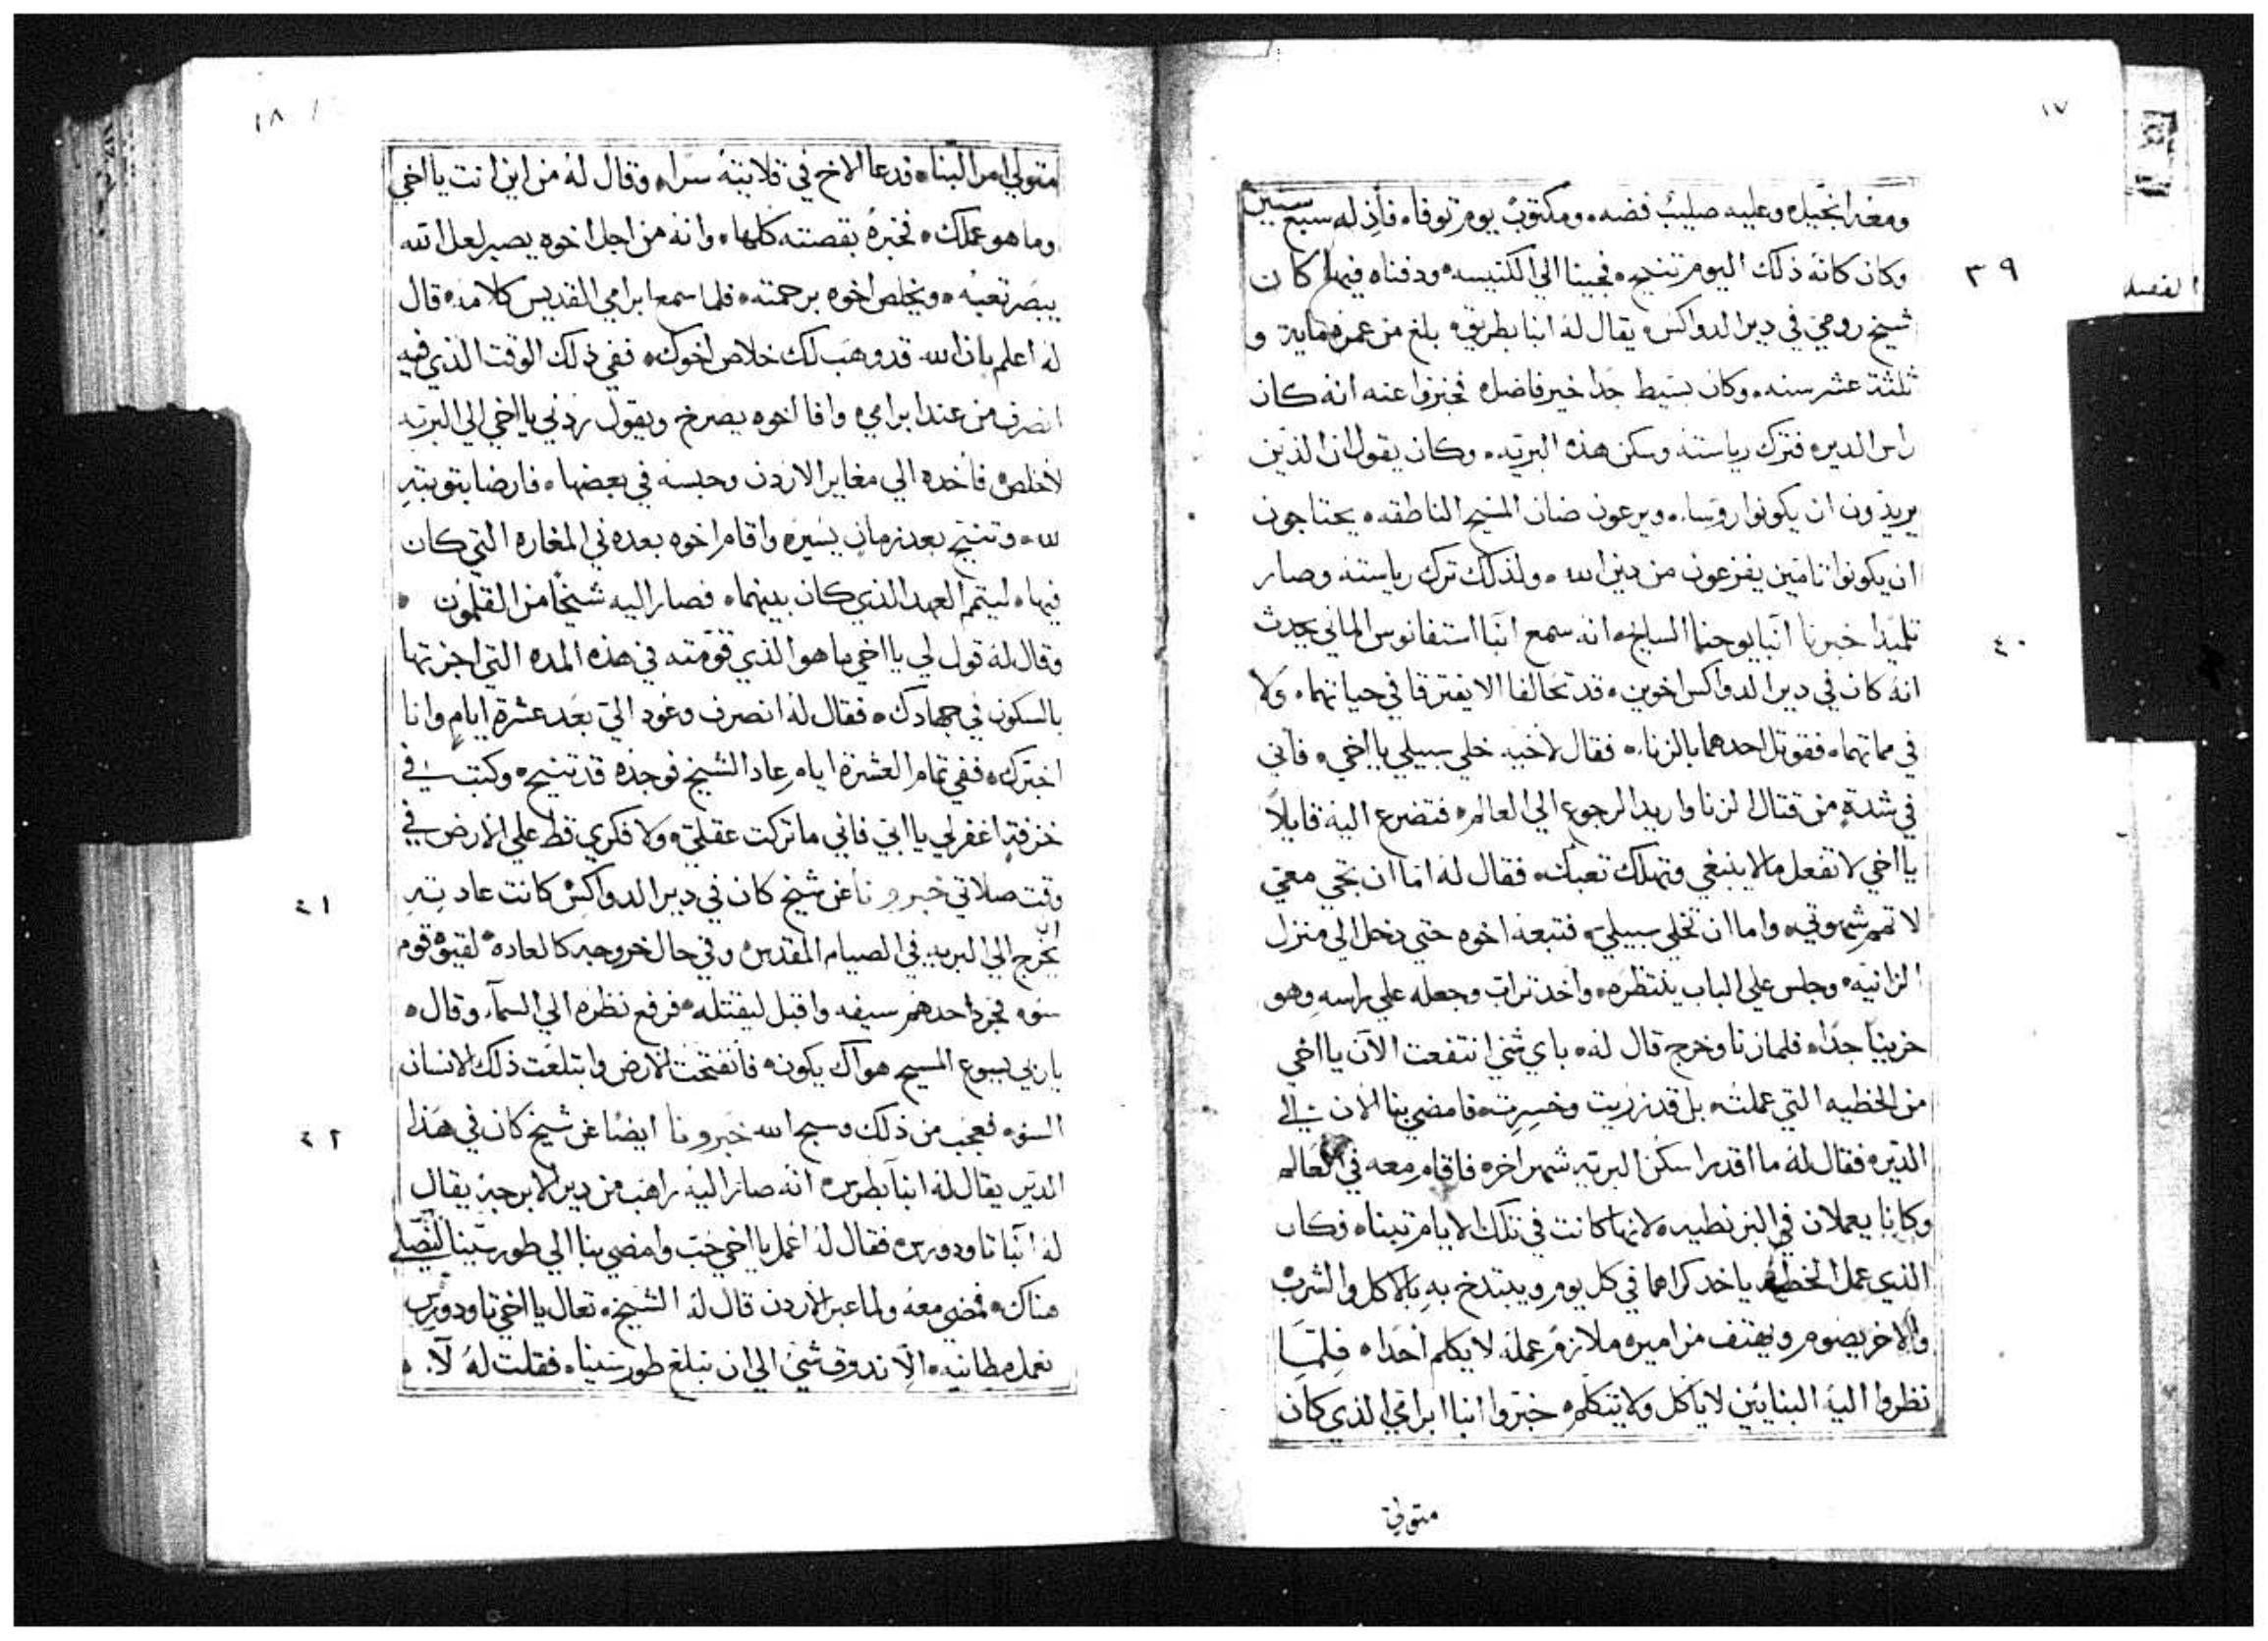 ١٧
ومعه انجيله وعليه صليب فضه ومكتوب يوم توفاه فاذ له سبع سنين
وكان كانه ذلك اليوم تنيح فجينا الي الكنيسه ودفناه فيها كان
٣٩
شيخ رومي في دير الدواكس يقال له انبا بطريق بلغ من عمره ماية و
ثلثة عشر سنه وكان بسيط جدا خير فاضل فخبروا عنه انه كان
راس الدير فترك رياسته وسكن هذه البريه وكان يقول ان الذين
يريدون ان يكونوا روسا ويرعون ضان المسيح الناطقه يحتاجون
ان يكونوا تامين يفزعون من دين الله ولذلك ترك رياسته وصار
تلميذا خبرنا انبا يوحنا السايح انه سمع انبا استفانوس الماني يحدث
٤٠
انه كان في دير الدواكس اخوين قد تحالفا الا يفترقا في حياتهما ولا
في مماتهما فقوتل احدهما بالزنا فقال لاخيه خلي سبيلي يا اخي فاني
في شدة من قتال الزنا واريد الرجوع الي العالم فتضرع اليه قايلا
يا اخي لا تفعل ما لا ينبغي وتهلك تعبك فقال له اما ان تجي معي
لاتمم شهوتي واما ان تخلي سبيلي فتبعه اخوه حتي دخل الي منزل
الزانيه وجلس علي الباب ينتظره واخذ تراب وجعله علي راسه وهو
حزينا جدا فلما زنا وخرج قال له باي شي انتفعت الان يا اخي
من الخطيه التي عملت بل قد رزيت وخسرت فامضي بنا الان الي
الدير فقال له ما اقدر اسكن البريه شهر اخره فاقام معه في العالم
وكانا يعملان في البزنطيه لانها كانت في تلك الايام تبنا وكان
الذي عمل الخطيه ياخد كراهما في كل يوم ويبتدخ به بالاكل والشرب
والاخر يصوم ملازم عمله لا يكلم احدا فلما
نظروا اليه البنايين لا ياكل ولا يتكلم خبروا انبا ابرامي الذي كان
متولي
١٨
متولي امر البنا فدعا الاخ في قلايته سرا وقال له من اين انت يا اخي
وما هو عملك فخبره بقصته كلها وانه من اجل اخوه يصبر لعل الله
يبصر تعبه ويخلص اخوه برحمته فلما سمع ابرامي القديس كلامه قال
له اعلم بان الله قد وهب لك خلاص اخوك ففي ذلك الوقت الذي فيه
انصرف من عند ابرامي وافا اخوه يصرخ ويقول ردني يا اخي الي البريه
لاخلص فاخده الي مغاير الاردن وحبسه في بعضها فارضا بتوبته
لله وتنيح بعد زمان يسير واقام اخوه بعده في المغاره التي كان
فيها ليتمم العهد الذي كان بينهما فصار اليه شيخا من القلمون
وقال له قول لي يا اخي ما هو الذي قومته في هذه المده التي اجزتها
بالسكون في جهادك فقال له انصرف وعود الي بعد عشرة ايام وانا
اخبرك ففي تمام العشرة ايام عاد الشيخ فوجده قد تنيح وكتب في
خزفة اغفر لي يا ابي فاني ما تركت عقلي ولا فكري قط علي الارض في
وقت صلاتي خبرونا عن شيخ كان في دير الدواكس كانت عادته
٤١
ان يخرج الي البريه في الصيام المقدس وفي حال خروجه كالعاده لقيوه قوم
سوء فجرد احدهم سيفه واقبل ليقتله فرفع نظره الي السماء وقال
يا ربي يسوع المسيح هواك يكون فانفتحت الارض وابتلعت ذلك الانسان
السوء فعجب من ذلك وسبح الله خبرونا ايضا عن شيخ كان في هذا
٤٢
الدير يقال له انبا بطرس انه صار اليه راهب من دير الابرجه يقال
له انبا تاودورس فقال له اعمل يا اخي حب وامضي بنا الي طور سينا لنصلي
هناك فمضي معه ولما عبر الاردن قال له الشيخ تعال يا اخي تاودورس
نعمل مطانيه الا ندوق شي الي ان نبلغ طور سينا فقلت له لا